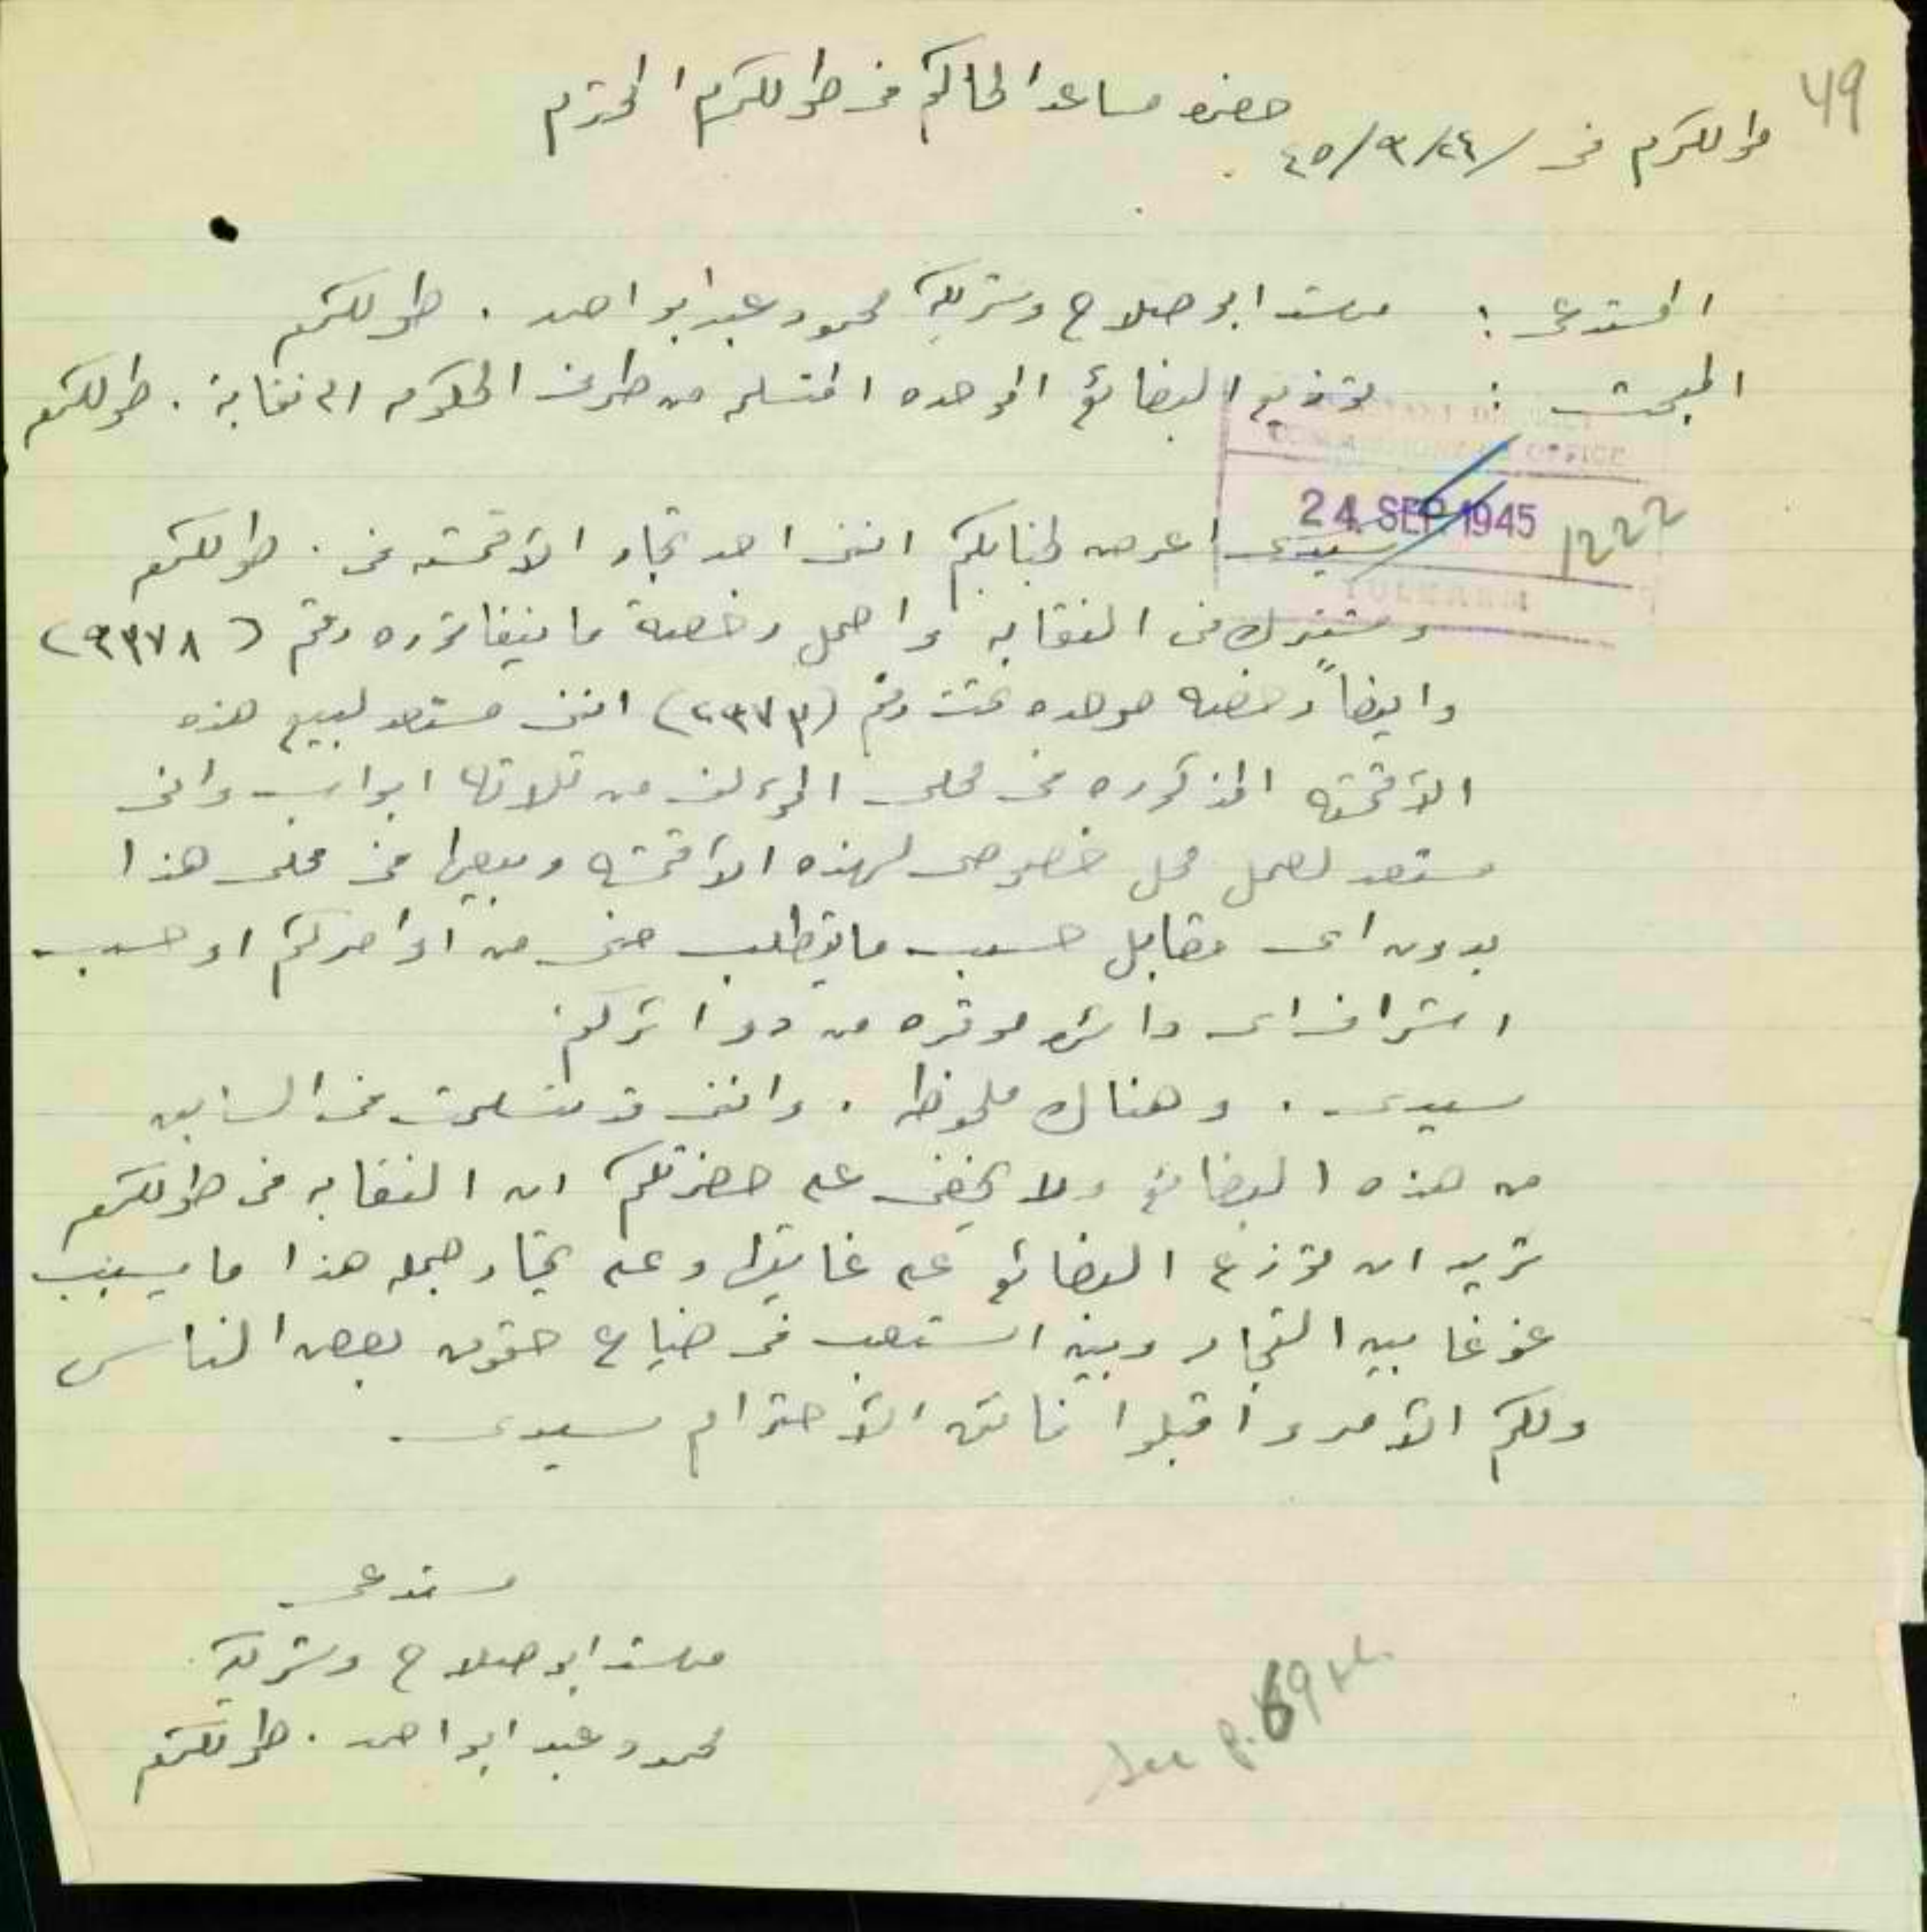 49
حضرة مساعد الحاكم في طولكرم المحترم
طولكرم في ٢٤/٩/٤٥
المستدعي : مرشد ابو صلاح وشريكه محمود عبد ابو احمد . طولكرم
المبحث : توزيع البضائع الموحده المتسلمه من طرف الحكومه الى نقابة . طولكرم
ASSISTANT DISTRICT
COMMISSIONER'S OFFICE
24 SEP 1945
1222
TULKARM
سيدي اعرض لجنابكم انني احد تجار الاقمشه في . طولكرم
ومشترك في النقابه واحمل رخصة مانيفاتوره رقم (٩٣٧٨)
وايضاً رخصه موحده تحت رقم (٢٣٧٣) انني مستعد لبيع هذه
الاقمشه المذكوره في محلي المؤلف من ثلاثة ابواب واني
مستعد لعمل محل خصوصي لهذه الاقمشه وبيعها في محلي هذا
بدون اي مقابل حسب ما يتطلب مني من اوامركم او حسب
اشراف اي دائره موقره من دوائركم
سيدي . وهناك ملحوظه . وانني قد تسلمت في السابق
من هذه البضائع ولا يخفى على حضرتكم ان النقابه في طولكرم
تريد ان توزع البضائع على غايتها وعلى تجار جمله هذا ما يسبب
غوغا بين التجار وبين الشعب في ضياع حقوق بعض الناس
ولكم الامر واقبلوا فائق الاحترام سيدي
مستدعي
مرشد ابو صلاح وشريكه
محمود عبد ابو احمد . طولكرم
See p. 69